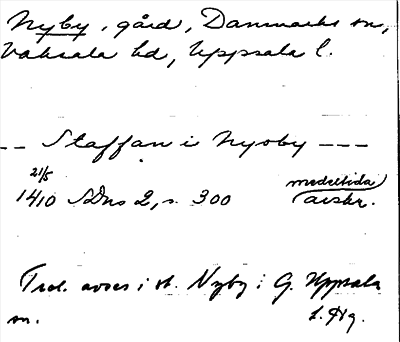 Nyby, gård, Danmarks sn,
Vaksala hd, Uppsala l.
-- Staffan i Nyoby ---
21/5
1410 SDns 2, s. 300 medeltida avskr.
Trol. avses i st. Nyby i G. Uppsala
sn. L. Hg.